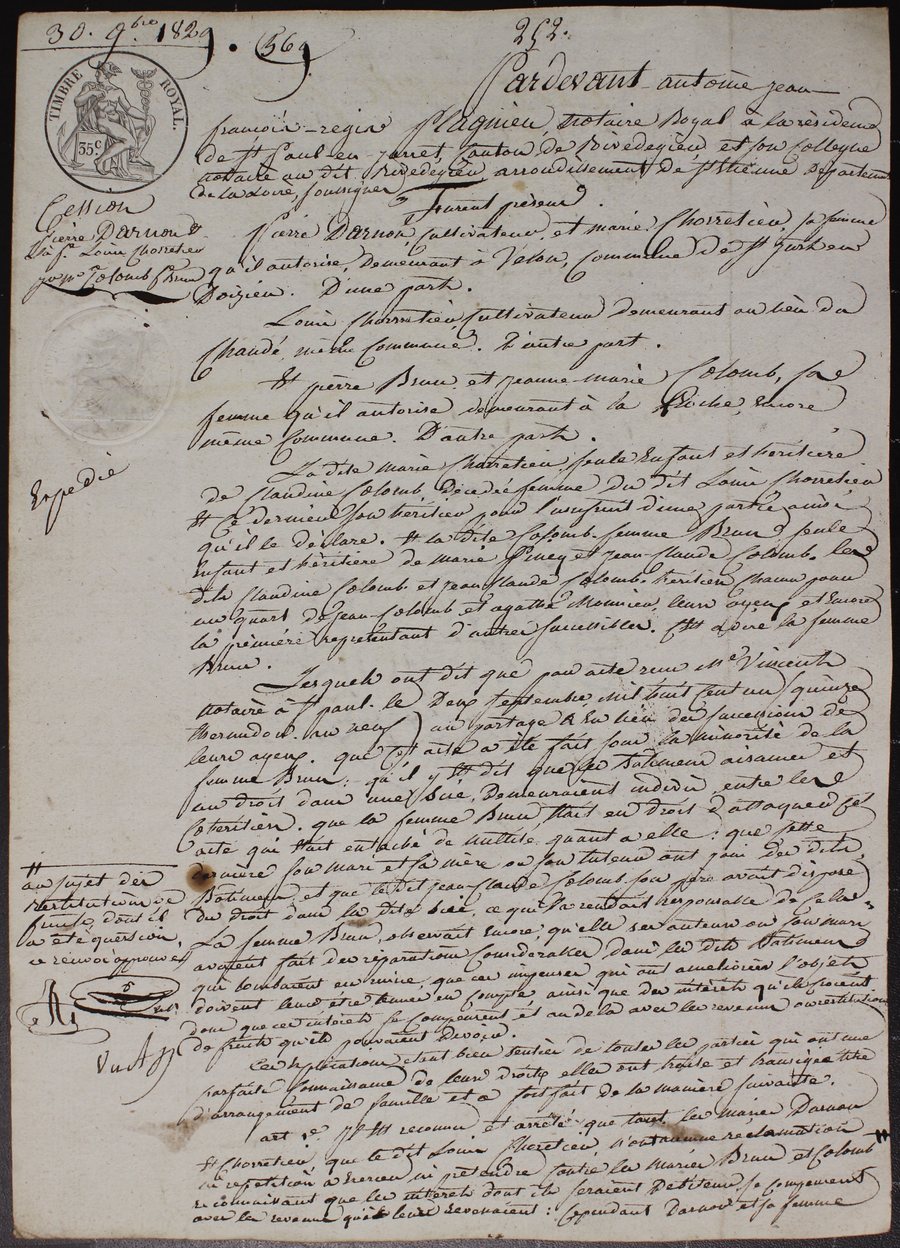 30. 9bre 1829. 569
252.
TIMBRE ROYAL.
35 c
Pardevant antoine jean
françois-regis Flagnieu, notaire Royal à la résidence
de St Paul-en-jarret, Canton de Rivedegier et son Collegue
notaire au dit Rivedegier arrondissement de St Etienne Département
de la Loire, soussignés
Furent présens
Pierre Darnon Cultivateur, et marie Chorretier, sa femme
qu'il autorise, demeurant à commune de St just en
Doizieu. D'une part.
Louis Chorretier Cultivateur demeurant au lieu du
Chandé, même Commune. D'autre part.
Et pierre Brun et jeanne-marie Colomb, sa
femme qu'il autorise demeurant à la encore
même Commune. D'autre part.
La dite marie Chorretier, seule enfant et héritière
de Claudine Colomb, décédée femme du dit Louis Chorretier
Et ce dernier son héritier pour l'usufruit d'une partie ainsi
qu'il le déclare. Et la dite Colomb femme Brun seule
enfant et héritière de marie et jean-Claude Colomb. les
dits Claudine Colomb et jean-Claude Colomb héritiers chacun pour
un quart de jean Colomb et agathe Monnier, leurs ayeux et encore
la première représentant d'autres successibles. Et a dire la femme
Brun.
Lesquels ont dit que par acte reçu Me Vincent
notaire à St paul le Deux Septembre mil huit cent un quinze
thermidor an neuf un partage a eu lieu des successions de
leurs ayeux. que cet acte a été fait sous la minorité de la
femme Brun. qu'il y est dit que les bâtimens aisances et
un droit dans une demeuraient indivis entre les
Coheritiers. que la femme Brun était en droit d'attaquer cet
acte qui était entaché de nullité quant a elle; que cette
dernière son mari et sa mère ou son tuteur ont joui des dits
Bâtimens, et que le dit jean-Claude Colomb son père avait disposé
du droit dans la dite ce qui la rendait responsable de cela
La femme Brun, observait encore, qu'elle ses auteurs ou son mari
avaient fait des réparations Considérables dans les dits Bâtimens
qui tombaient en ruine, que ces impenses qui ont amélioré l'objet
doivent leur être tenues en compte ainsi que des intérêts qu'ils
donc que ces intérêts se compensent et au delà avec les revenus ou restitution
de fruits qu'ils pouvaient devoir.
Ces explications étant bien senties de toutes les parties qui ont une
parfaite connaissance de leurs droits elles ont traité et transigé à titre
d'arrangement de famille et a forfait de la manière suivante.
art. 1er Il est reconnu et arrêté que tant les mariés Darnon
et Chorretier que le dit Louis Chorretier, n'ont aucune réclamation
ni repetition à exercer ni prétendre contre les mariés Brun et Colomb
reconnaissant que les intérêts dont ils seraient débiteurs se compensent
avec les revenus qui leurs revenaient: Cependant Darnon et sa femme
Cession
Pierre Darnon &
Louis Chorretier
Colomb f Brun
Expedié
au sujet des
restitutions de
fruits dont il
a été question,
ce renvoi approuvé